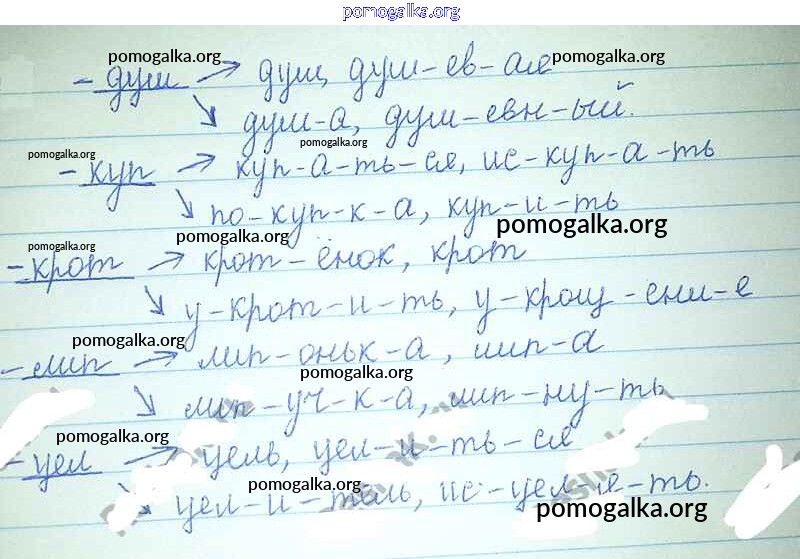 pomogalka.org
- душ → душ, душ-ев-ая
pomogalka.org pomogalka.org
↘ душ-а, душ-евн-ый.
pomogalka.org pomogalka.org
- куп → куп-а-ть-ся, ис-куп-а-ть
↘ по-куп-к-а, куп-и-ть
pomogalka.org pomogalka.org
pomogalka.org
- крот → крот-ёнок, крот
↘ у-крот-и-ть, у-крощ-ени-е
pomogalka.org
- лип → лип-оньк-а, лип-а
pomogalka.org
↘ лип-уч-к-а, лип-ну-ть
pomogalka.org
- цел → цель, цел-и-ть-ся
pomogalka.org
↘ цел-и-тель, ис-цел-я-ть.
pomogalka.org